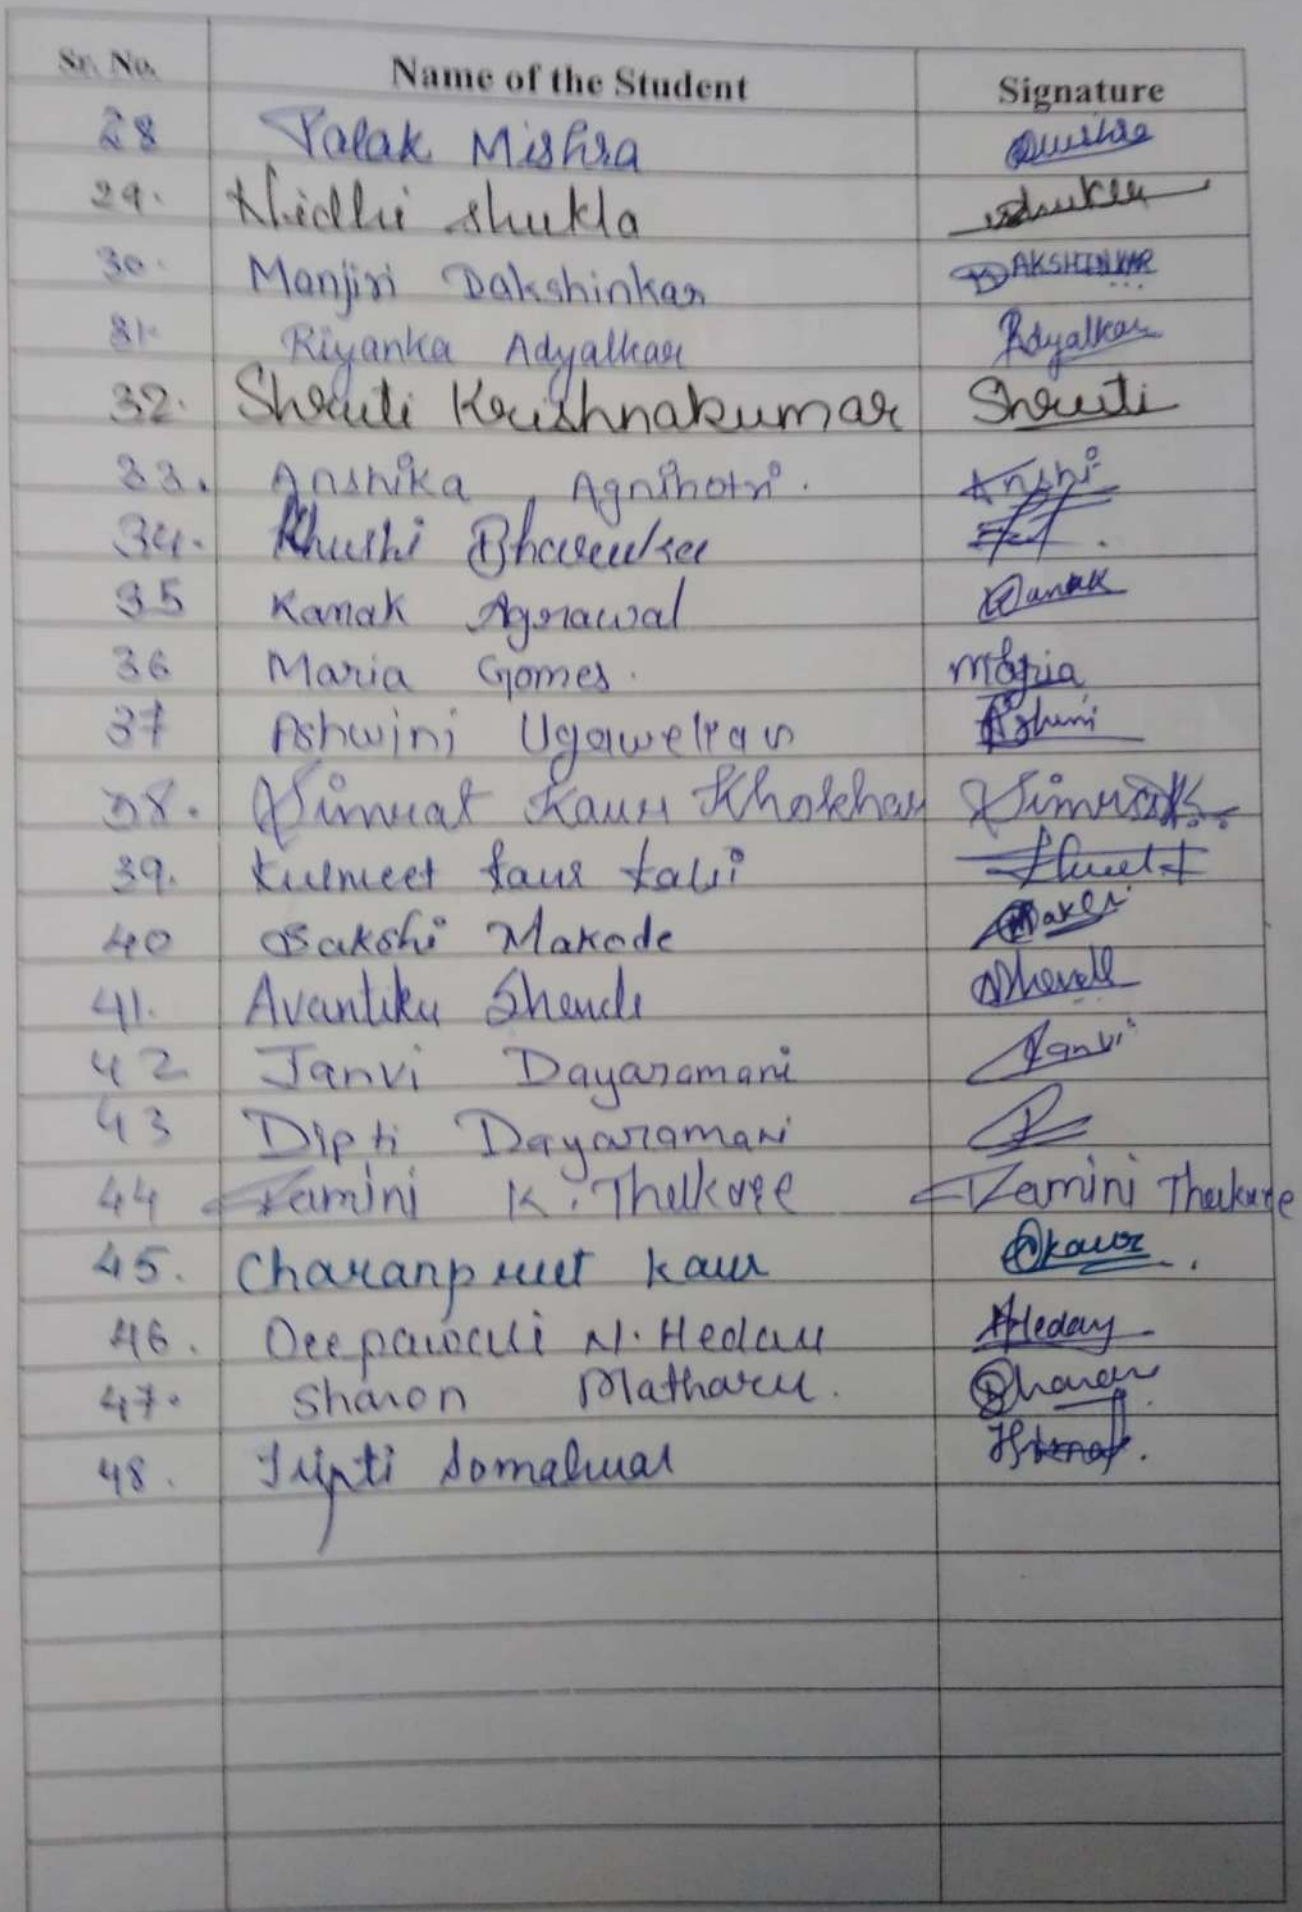 Sr. No. Name of the Student Signature
28 Palak Mishra
29. Nidhi Shukla Shukla
30. Manjiri Dakshinkar DAKSHINKAR
31. Riyanka Adyalkar Adyalkar
32. Shruti Krishnakumar Shruti
33. Anshika Agnihotri. Anshi
34. Khushi
35 Kanak Agrawal Kanak
36 Maria Gomes. Maria
37 Ashwini Ashwini
38. Simrat Kaur Khokhar Simrat K.
39. Kulmeet Kaur Kalsi
40 Sakshi Makode
41. Avantika Shende
42 Janvi Dayaramani Janvi
43 Dipti Dayaramani
44 K. Thakare Thakare
45. Charanpreet Kaur Kaur
46. N. Hedau Hedau
47. Sharon Matharu. Sharon
48. Tripti Somalwar